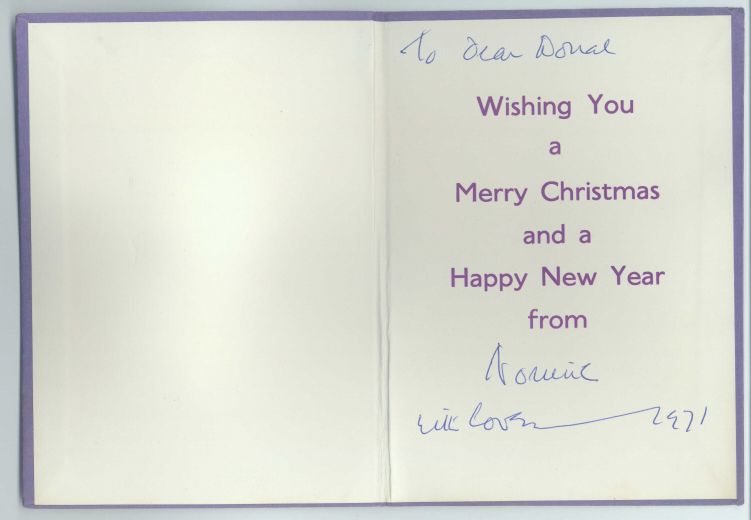 To Dear Donal
Wishing You
a
Merry Christmas
and a
Happy New Year
from
with love 1971